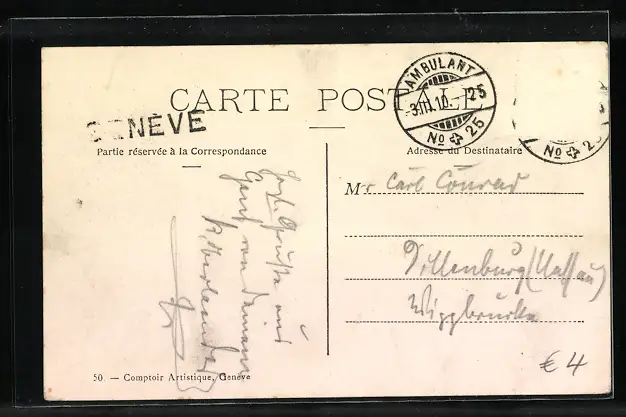 CARTE POSTALE
GENÈVE
AMBULANT
-3.III.10.-25
No 25
No 2
Partie réservée à la Correspondance
Adresse du Destinataire
Herzl. Grüße aus
Genf von deinem
Mr Carl Conrad
Dillenburg (Nassau)
50. — Comptoir Artistique, Genève
€ 4